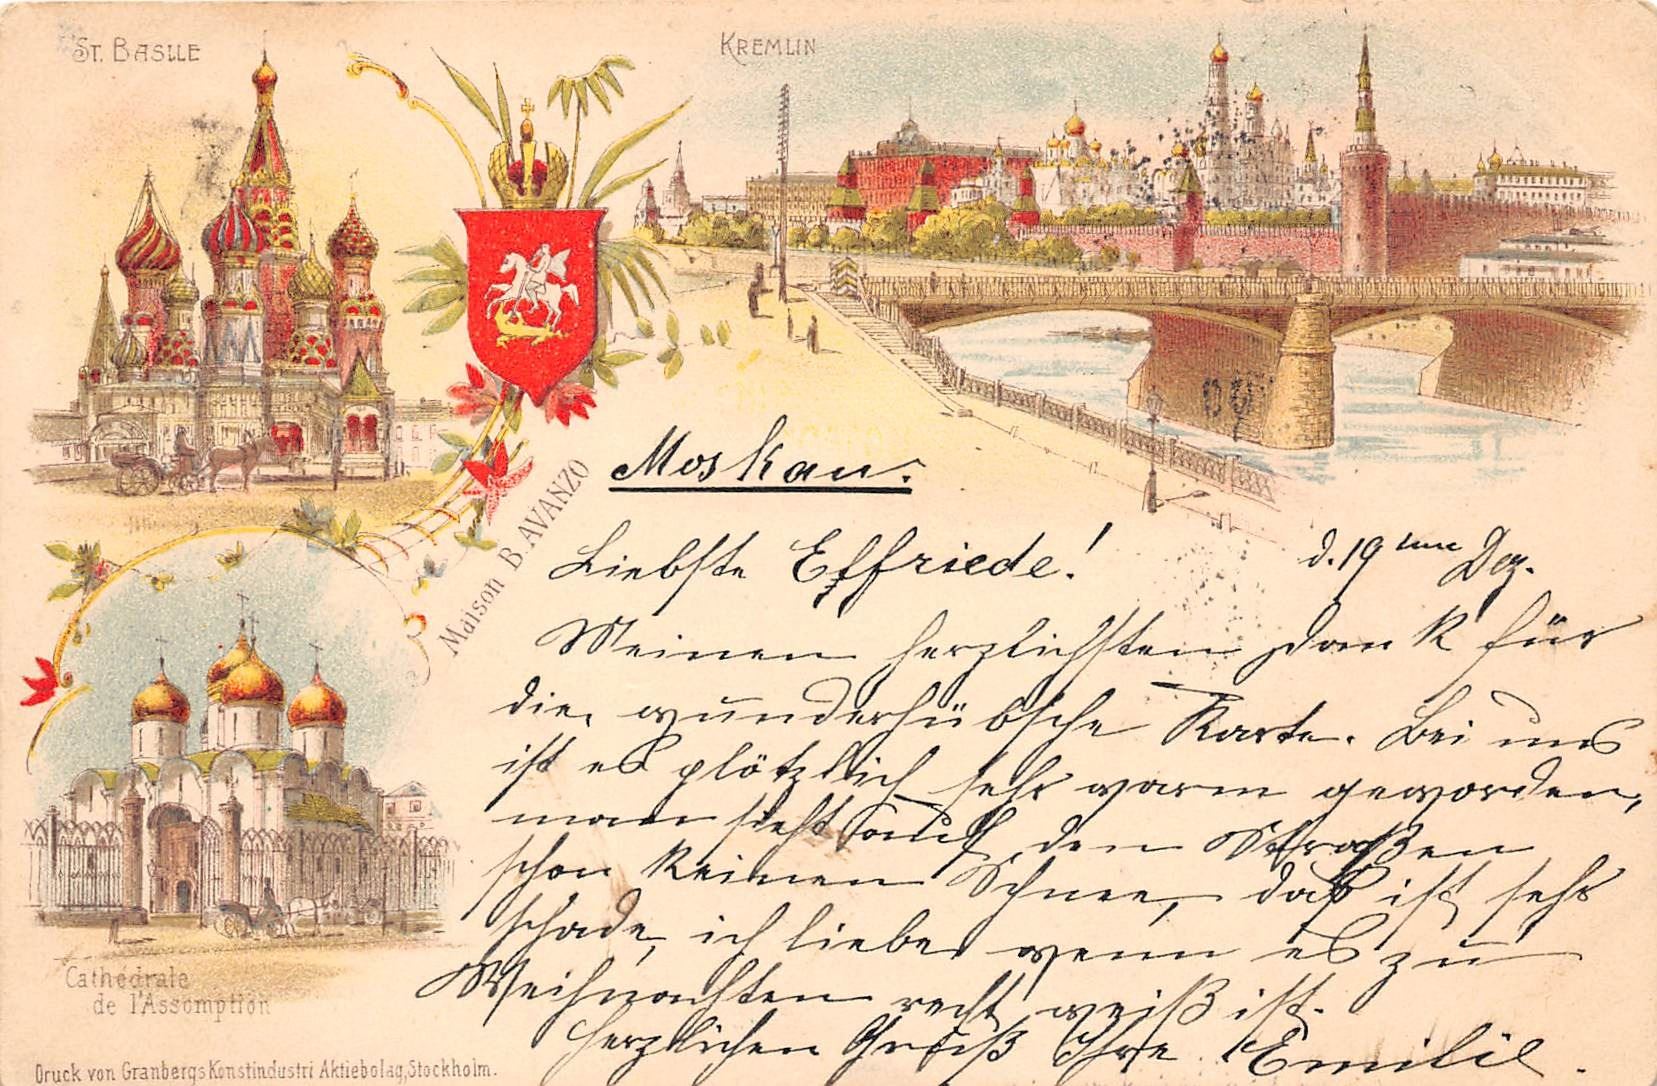 ST. BASILE
KREMLIN
Maison B. AVANZO
Moskau.
Liebste Elfriede!
d. 19 Dez.
Meinen herzlichsten Dank für
die wunderhübsche Karte. Bei uns
ist es plötzlich sehr warm geworden,
man sieht auf den Straßen
schon keinen Schnee, das ist sehr
schade, ich liebe wenn es zu
Weihnachten recht weiß ist.
Herzlichen Gruß Ihre Emilie.
Cathédrale
de l'Assomption
Druck von Granbergs Konstindustri Aktiebolag, Stockholm.